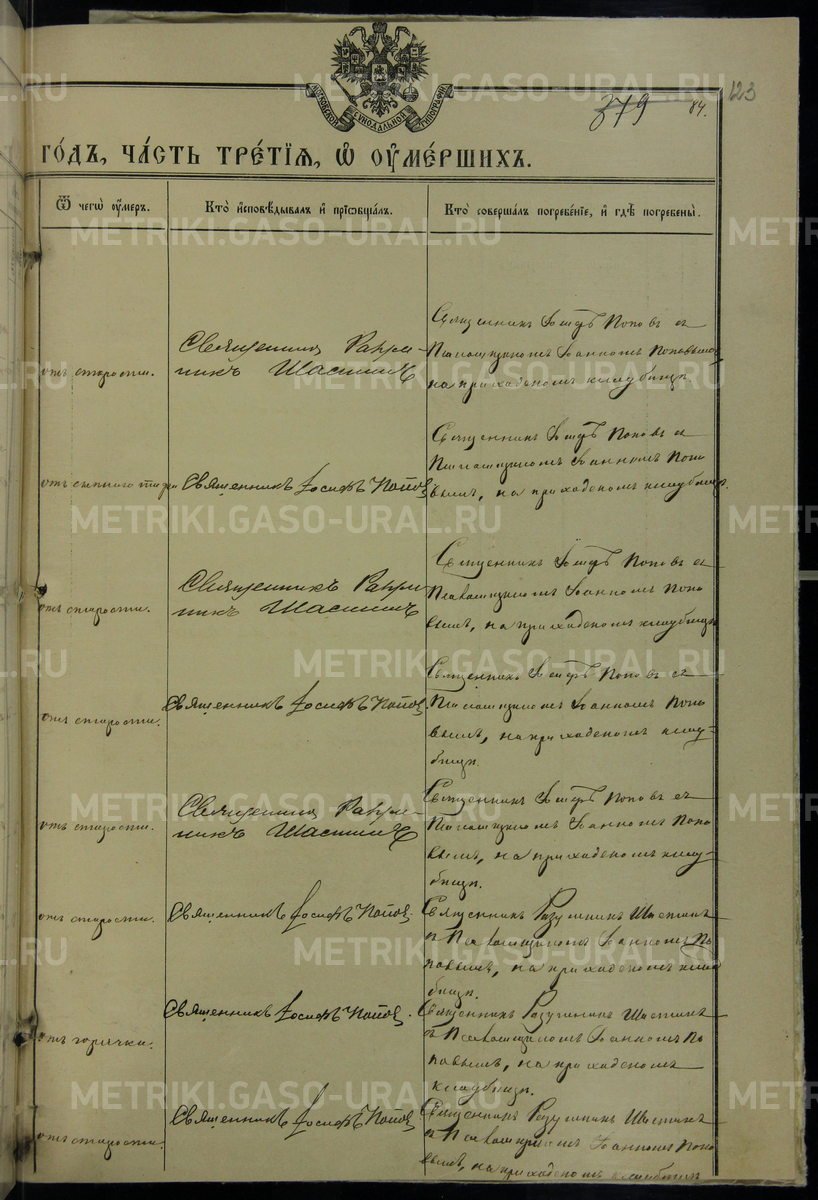 МОСКОВСКОЙ СУНОДАЛЬНОЙ ТИПОГРАФІИ
379 84. 123
ГОДЪ, ЧАСТЬ ТРЕТІЯ, Ѡ ОУМЕРШИХЪ.
Ѿ чегѡ оумеръ.
Кто исповѣдывалъ и приѡбщалъ.
Кто совершалъ погребеніе, и гдѣ погребены.
отъ старости.
Священник
никъ Шастинъ
Священникъ Іосифъ Поповъ съ
Псаломщикомъ Іоанномъ Поповымъ,
на приходскомъ кладбищѣ
отъ сыпного тифа
Священникъ Іосифъ Поповъ
Священникъ Іосифъ Поповъ съ
Псаломщикомъ Іоанномъ Попо
вымъ, на приходскомъ кладбищѣ.
отъ старости.
Священникъ
никъ Шастинъ
Священникъ Іосифъ Поповъ съ
Псаломщикомъ Іоанномъ Попо
вымъ, на приходскомъ кладбищѣ
отъ старости.
Священникъ Іосифъ Поповъ
Священникъ Іосифъ Поповъ съ
Псаломщикомъ Іоанномъ Попо
вымъ, на приходскомъ клад-
бищѣ.
отъ старости.
Священник
никъ Шастинъ
Священникъ Іосифъ Поповъ съ
Псаломщикомъ Іоанномъ Попо
вымъ, на приходскомъ клад-
бищѣ.
отъ старости.
Священникъ Іосифъ Поповъ.
Священникъ Шастинъ
съ Псаломщикомъ Іоанномъ По
повымъ, на приходскомъ клад
бищѣ.
отъ горячки.
Священникъ Іосифъ Поповъ.
Священникъ Шастинъ
съ Псаломщикомъ Іоанномъ По
повымъ, на приходскомъ
кладбищѣ.
отъ старости.
Священникъ Іосифъ Поповъ
Священникъ Шастинъ
съ Псаломщикомъ Іоанномъ Попо
вымъ, на приходскомъ кладбищѣ
METRIKI.GASO-URAL.RU